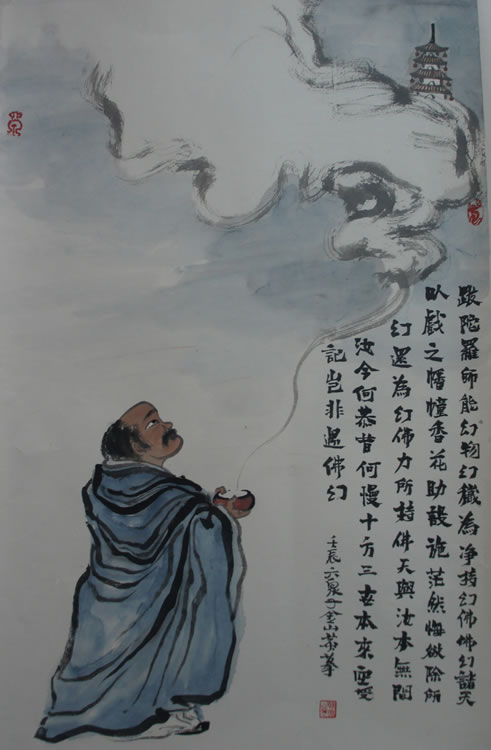 跋陀羅師能幻物幻穢為淨持幻佛佛幻諸天
以戲之幡幢香花助設施茫然悔欲除所
幻還為幻佛力所持佛天與汝本無間
汝今何恭昔何慢十方三世本來空受
記豈非遇佛幻
壬辰六泉于金山